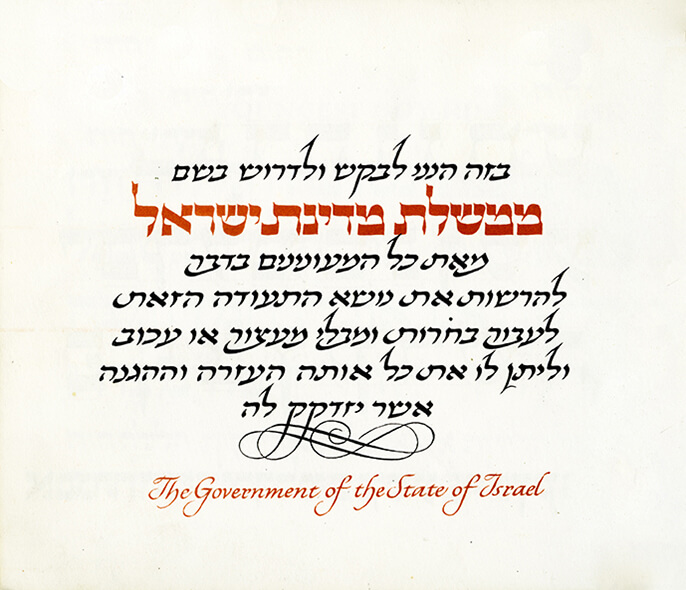 בזה הנני לבקש ולדרוש בשם
ממשלת מדינת ישראל
מאת כל המעונינים בדבר
להרשות את נושא התעודה הזאת
לעבור בחרות ומבלי מעצור או עכוב
וליתן לו את כל אותה העזרה וההגנה
אשר יזדקק לה
The Government of the State of Israel